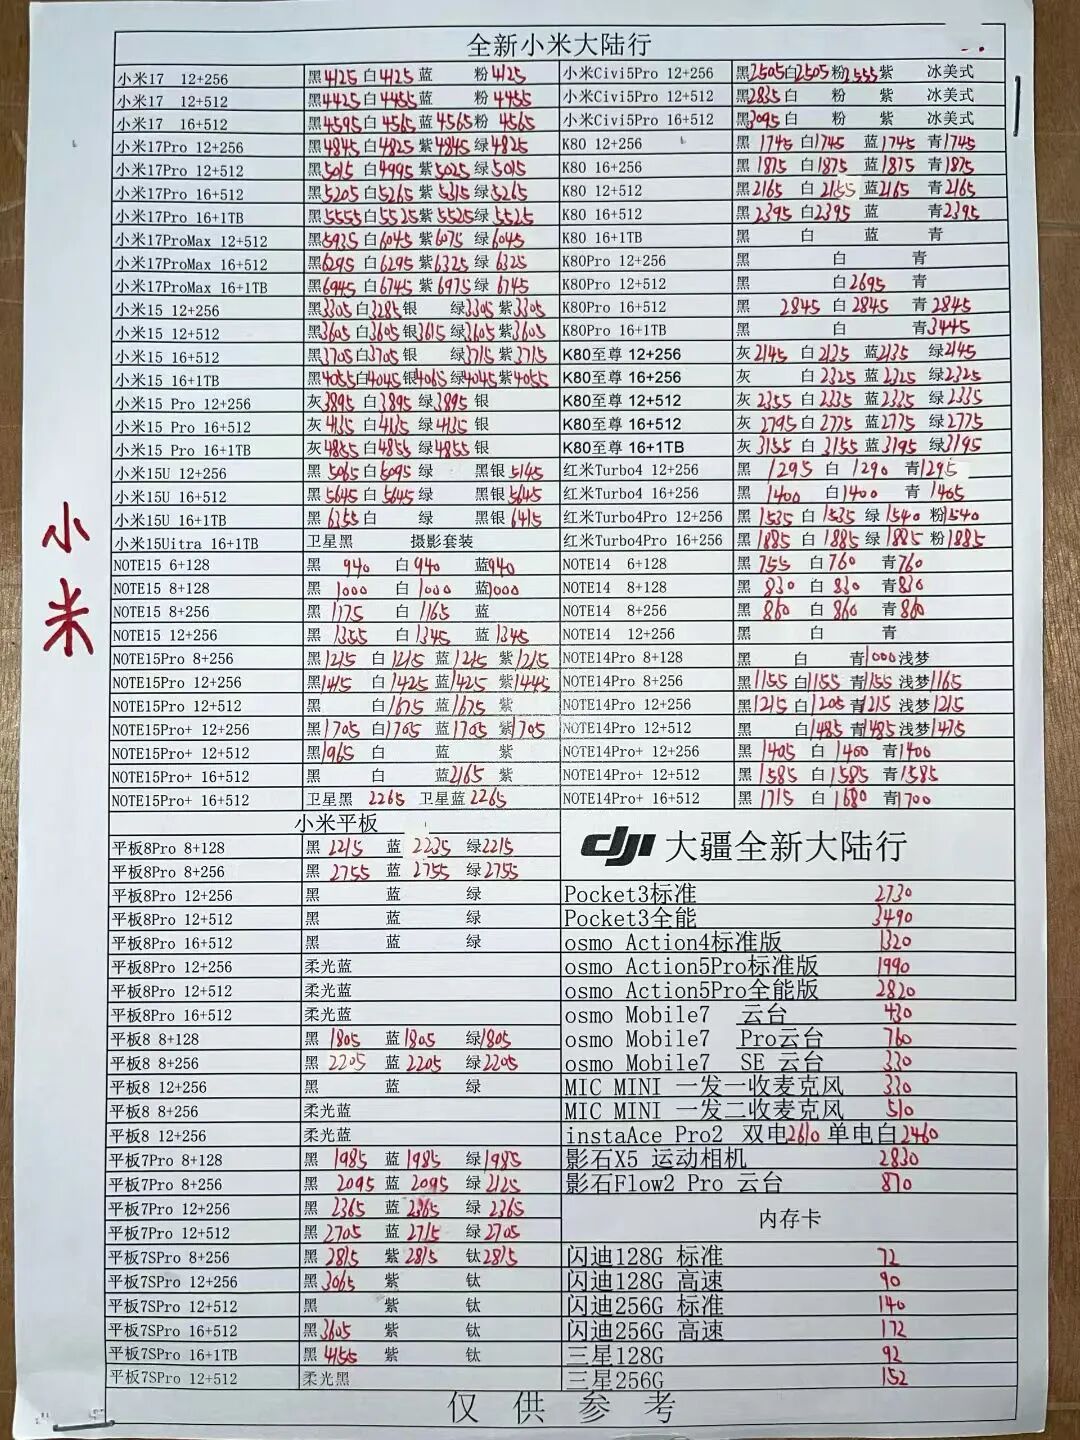 全新小米大陆行
小米17 12+256 黑4125 白4125 蓝 粉4125
小米17 12+512 黑4425 白4455 蓝 粉4455
小米17 16+512 黑4595 白4565 蓝4565 粉4565
小米17Pro 12+256 黑4845 白4825 紫4845 绿4825
小米17Pro 12+512 黑5015 白4995 紫5025 绿5015
小米17Pro 16+512 黑5205 白5265 紫5315 绿5265
小米17Pro 16+1TB 黑5555 白5525 紫5525 绿5525
小米17ProMax 12+512 黑5935 白6045 紫6075 绿6045
小米17ProMax 16+512 黑6295 白6295 紫6325 绿6325
小米17ProMax 16+1TB 黑6945 白6745 紫6975 绿6745
小米15 12+256 黑3305 白3285 银 绿3305 紫3305
小米15 12+512 黑3605 白3605 银3615 绿3605 紫3605
小米15 16+512 黑3705 白3705 银 绿3715 紫3715
小米15 16+1TB 黑4055 白4045 银4065 绿4045 紫4055
小米15 Pro 12+256 灰3895 白3895 绿3895 银
小米15 Pro 16+512 灰4135 白4135 绿4135 银
小米15 Pro 16+1TB 灰4855 白4855 绿4855 银
小米15U 12+256 黑5065 白5095 绿 黑银5145
小米15U 16+512 黑5645 白5645 绿 黑银5645
小米15U 16+1TB 黑6355 白 绿 黑银6415
小米15Uitra 16+1TB 卫星黑 摄影套装
NOTE15 6+128 黑940 白940 蓝940
NOTE15 8+128 黑1000 白1000 蓝1000
NOTE15 8+256 黑1175 白1165 蓝
NOTE15 12+256 黑1355 白1345 蓝1345
NOTE15Pro 8+256 黑1215 白1215 蓝1215 紫1215
NOTE15Pro 12+256 黑1415 白1425 蓝1425 紫1445
NOTE15Pro 12+512 黑 白1675 蓝1675 紫
NOTE15Pro+ 12+256 黑1705 白1705 蓝1705 紫1705
NOTE15Pro+ 12+512 黑1965 白 蓝 紫
NOTE15Pro+ 16+512 黑 白 蓝2165 紫
NOTE15Pro+ 16+512 卫星黑 2265 卫星蓝 2265
小米Civi5Pro 12+256 黑2505 白2505 粉2555 紫 冰美式
小米Civi5Pro 12+512 黑2835 白 粉 紫 冰美式
小米Civi5Pro 16+512 黑3095 白 粉 紫 冰美式
K80 12+256 黑1745 白1745 蓝1745 青1745
K80 16+256 黑1875 白1875 蓝1875 青1875
K80 12+512 黑2165 白2165 蓝2165 青2165
K80 16+512 黑2395 白2395 蓝 青2395
K80 16+1TB 黑 白 蓝 青
K80Pro 12+256 黑 白 青
K80Pro 12+512 黑 白2695 青
K80Pro 16+512 黑2845 白2845 青2845
K80Pro 16+1TB 黑 白 青3445
K80至尊 12+256 灰2145 白2135 蓝2135 绿2145
K80至尊 16+256 灰 白2325 蓝2325 绿2325
K80至尊 12+512 灰2355 白2335 蓝2335 绿2335
K80至尊 16+512 灰2795 白2775 蓝2775 绿2775
K80至尊 16+1TB 灰3155 白3155 蓝3195 绿3195
红米Turbo4 12+256 黑1295 白1290 青1295
红米Turbo4 16+256 黑1400 白1400 青1405
红米Turbo4Pro 12+256 黑1535 白1535 绿1540 粉1540
红米Turbo4Pro 16+256 黑1885 白1885 绿1885 粉1885
NOTE14 6+128 黑755 白760 青760
NOTE14 8+128 黑830 白830 青830
NOTE14 8+256 黑860 白860 青860
NOTE14 12+256 黑 白 青
NOTE14Pro 8+128 黑 白 青1000 浅梦
NOTE14Pro 8+256 黑1155 白1155 青1155 浅梦1165
NOTE14Pro 12+256 黑1215 白1205 青1215 浅梦1215
NOTE14Pro 12+512 黑 白1485 青1485 浅梦1475
NOTE14Pro+ 12+256 黑1405 白1400 青1400
NOTE14Pro+ 12+512 黑1585 白1585 青1585
NOTE14Pro+ 16+512 黑1715 白1680 青1700
小米
小米平板
平板8Pro 8+128 黑2215 蓝2235 绿2215
平板8Pro 8+256 黑2755 蓝2755 绿2755
平板8Pro 12+256 黑 蓝 绿
平板8Pro 12+512 黑 蓝 绿
平板8Pro 16+512 黑 蓝 绿
平板8Pro 12+256 柔光蓝
平板8Pro 12+512 柔光蓝
平板8Pro 16+512 柔光蓝
平板8 8+128 黑1805 蓝1805 绿1805
平板8 8+256 黑2205 蓝2205 绿2205
平板8 12+256 黑 蓝 绿
平板8 8+256 柔光蓝
平板8 12+256 柔光蓝
平板7Pro 8+128 黑1985 蓝1985 绿1985
平板7Pro 8+256 黑2095 蓝2095 绿2125
平板7Pro 12+256 黑2365 蓝2365 绿2365
平板7Pro 12+512 黑2705 蓝2715 绿2705
平板7SPro 8+256 黑2815 紫2815 钛2815
平板7SPro 12+256 黑3065 紫 钛
平板7SPro 12+512 黑 紫 钛
平板7SPro 16+512 黑3605 紫 钛
平板7SPro 16+1TB 黑4155 紫 钛
平板7SPro 12+512 柔光黑
dji 大疆全新大陆行
Pocket3标准 2730
Pocket3全能 3490
osmo Action4标准版 1320
osmo Action5Pro标准版 1990
osmo Action5Pro全能版 2820
osmo Mobile7 云台 430
osmo Mobile7 Pro云台 760
osmo Mobile7 SE 云台 330
MIC MINI 一发一收麦克风 330
MIC MINI 一发二收麦克风 510
instaAce Pro2 双电2610 单电白2460
影石X5 运动相机 2830
影石Flow2 Pro 云台 870
内存卡
闪迪128G 标准 72
闪迪128G 高速 90
闪迪256G 标准 140
闪迪256G 高速 172
三星128G 92
三星256G 152
仅供参考